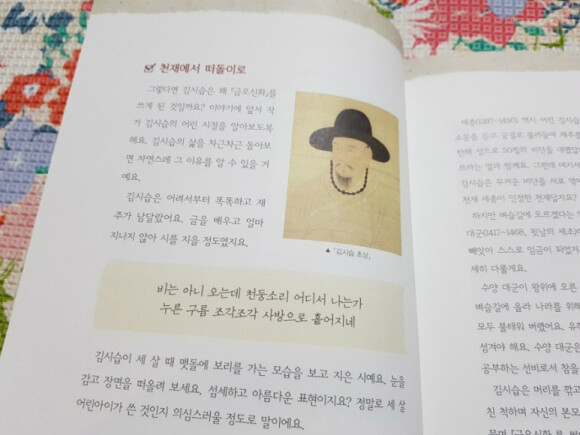 천재에서 떠돌이로
그렇다면 김시습은 왜 「금오신화」를
쓰게 된 것일까요? 이야기에 앞서 작
가 김시습의 어린 시절을 알아보도록
해요. 김시습의 삶을 차근차근 돌아보
면 자연스레 그 이유를 알 수 있을 거
예요.
김시습은 어려서부터 똑똑하고 재
주가 남달랐어요. 글을 배우고 얼마
지나지 않아 시를 지을 정도였지요.
▲ 「김시습 초상」
비는 아니 오는데 천둥소리 어디서 나는가
누른 구름 조각조각 사방으로 흩어지네
김시습이 세 살 때 맷돌에 보리를 가는 모습을 보고 지은 시예요. 눈을
감고 장면을 떠올려 보세요. 섬세하고 아름다운 표현이지요? 정말로 세 살
어린아이가 쓴 것인지 의심스러울 정도로 말이에요.
세종(1397~1450) 역시 어린 김시습
소문을 듣고 궁궐로 불러들여 재주를
탄해 상으로 50필의 비단을 내렸답
뜨라는 말과 함께요. 그런데 여기서
김시습은 무거운 비단을 서로 엮어
천재 세종이 인정한 천재답지요?
하지만 벼슬길에 오르겠다는
대군(1417~1468, 훗날의 세조)이
빼앗아 스스로 임금이 되었거
세히 다룰게요.
수양 대군이 왕위에 오른
벼슬길에 올라 나라를 위해
모두 불태워 버렸어요. 유
섬겨야 해요. 수양 대군은
공부하는 선비로서 참을
김시습은 머리를 깎고
친 척하며 자신의 본모